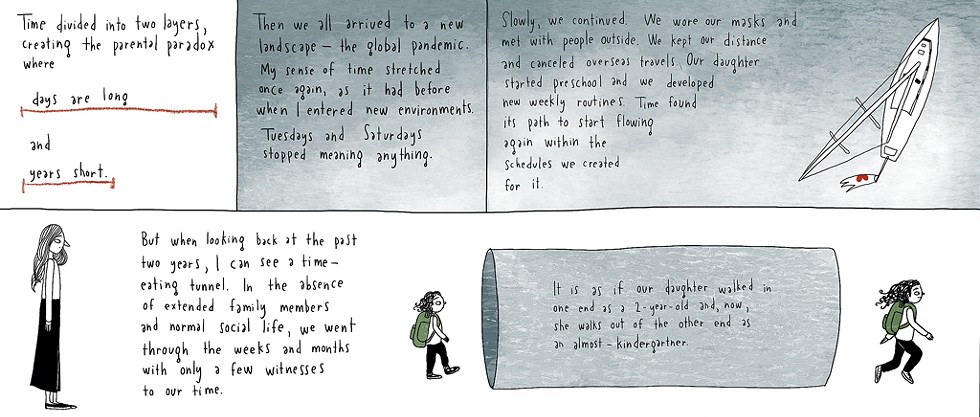 Time divided into two layers,
creating the parental paradox
where
days are long
and
years short.
Then we all arrived to a new
landscape – the global pandemic.
My sense of time stretched
once again, as it had before
when I entered new environments.
Tuesdays and Saturdays
stopped meaning anything.
Slowly, we continued. We wore our masks and
met with people outside. We kept our distance
and canceled overseas travels. Our daughter
started preschool and we developed
new weekly routines. Time found
its path to start flowing
again within the
schedules we created
for it.
But when looking back at the past
two years, I can see a time-
eating tunnel. In the absence
of extended family members
and normal social life, we went
through the weeks and months
with only a few witnesses
to our time.
It is as if our daughter walked in
one end as a 2-year-old and, now,
she walks out of the other end as
an almost-kindergartner.